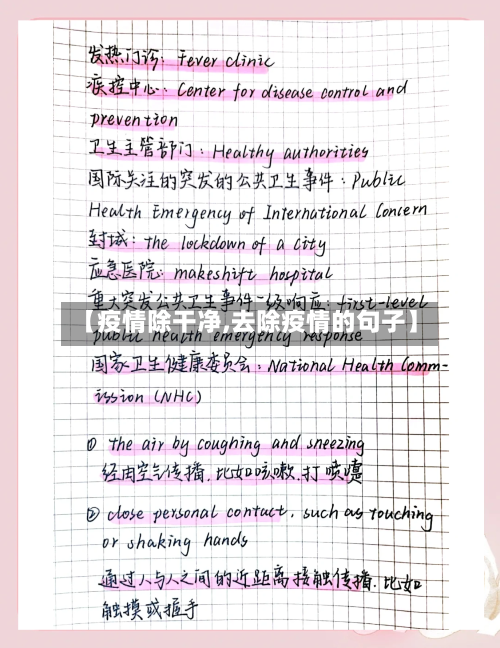 发热门诊: Fever clinic
疾控中心: Center for disease control and
prevention
卫生主管部门: Healthy authorities
国际关注的突发的公共卫生事件: Public
Health Emergency of International Concern
封城: the lockdown of a city
应急医院: makeshift hospital
重大突发公共卫生事件一级响应: first-level
【疫情除干净,去除疫情的句子】
public health emergency response
国家卫生健康委员会: National Health Comm-
ission (NHC)
① the air by coughing and sneezing
经由空气传播, 比如咳嗽, 打喷嚏
② close personal contact, such as touching
or shaking hands
通过人与人之间的近距离接触传播, 比如
触摸或握手